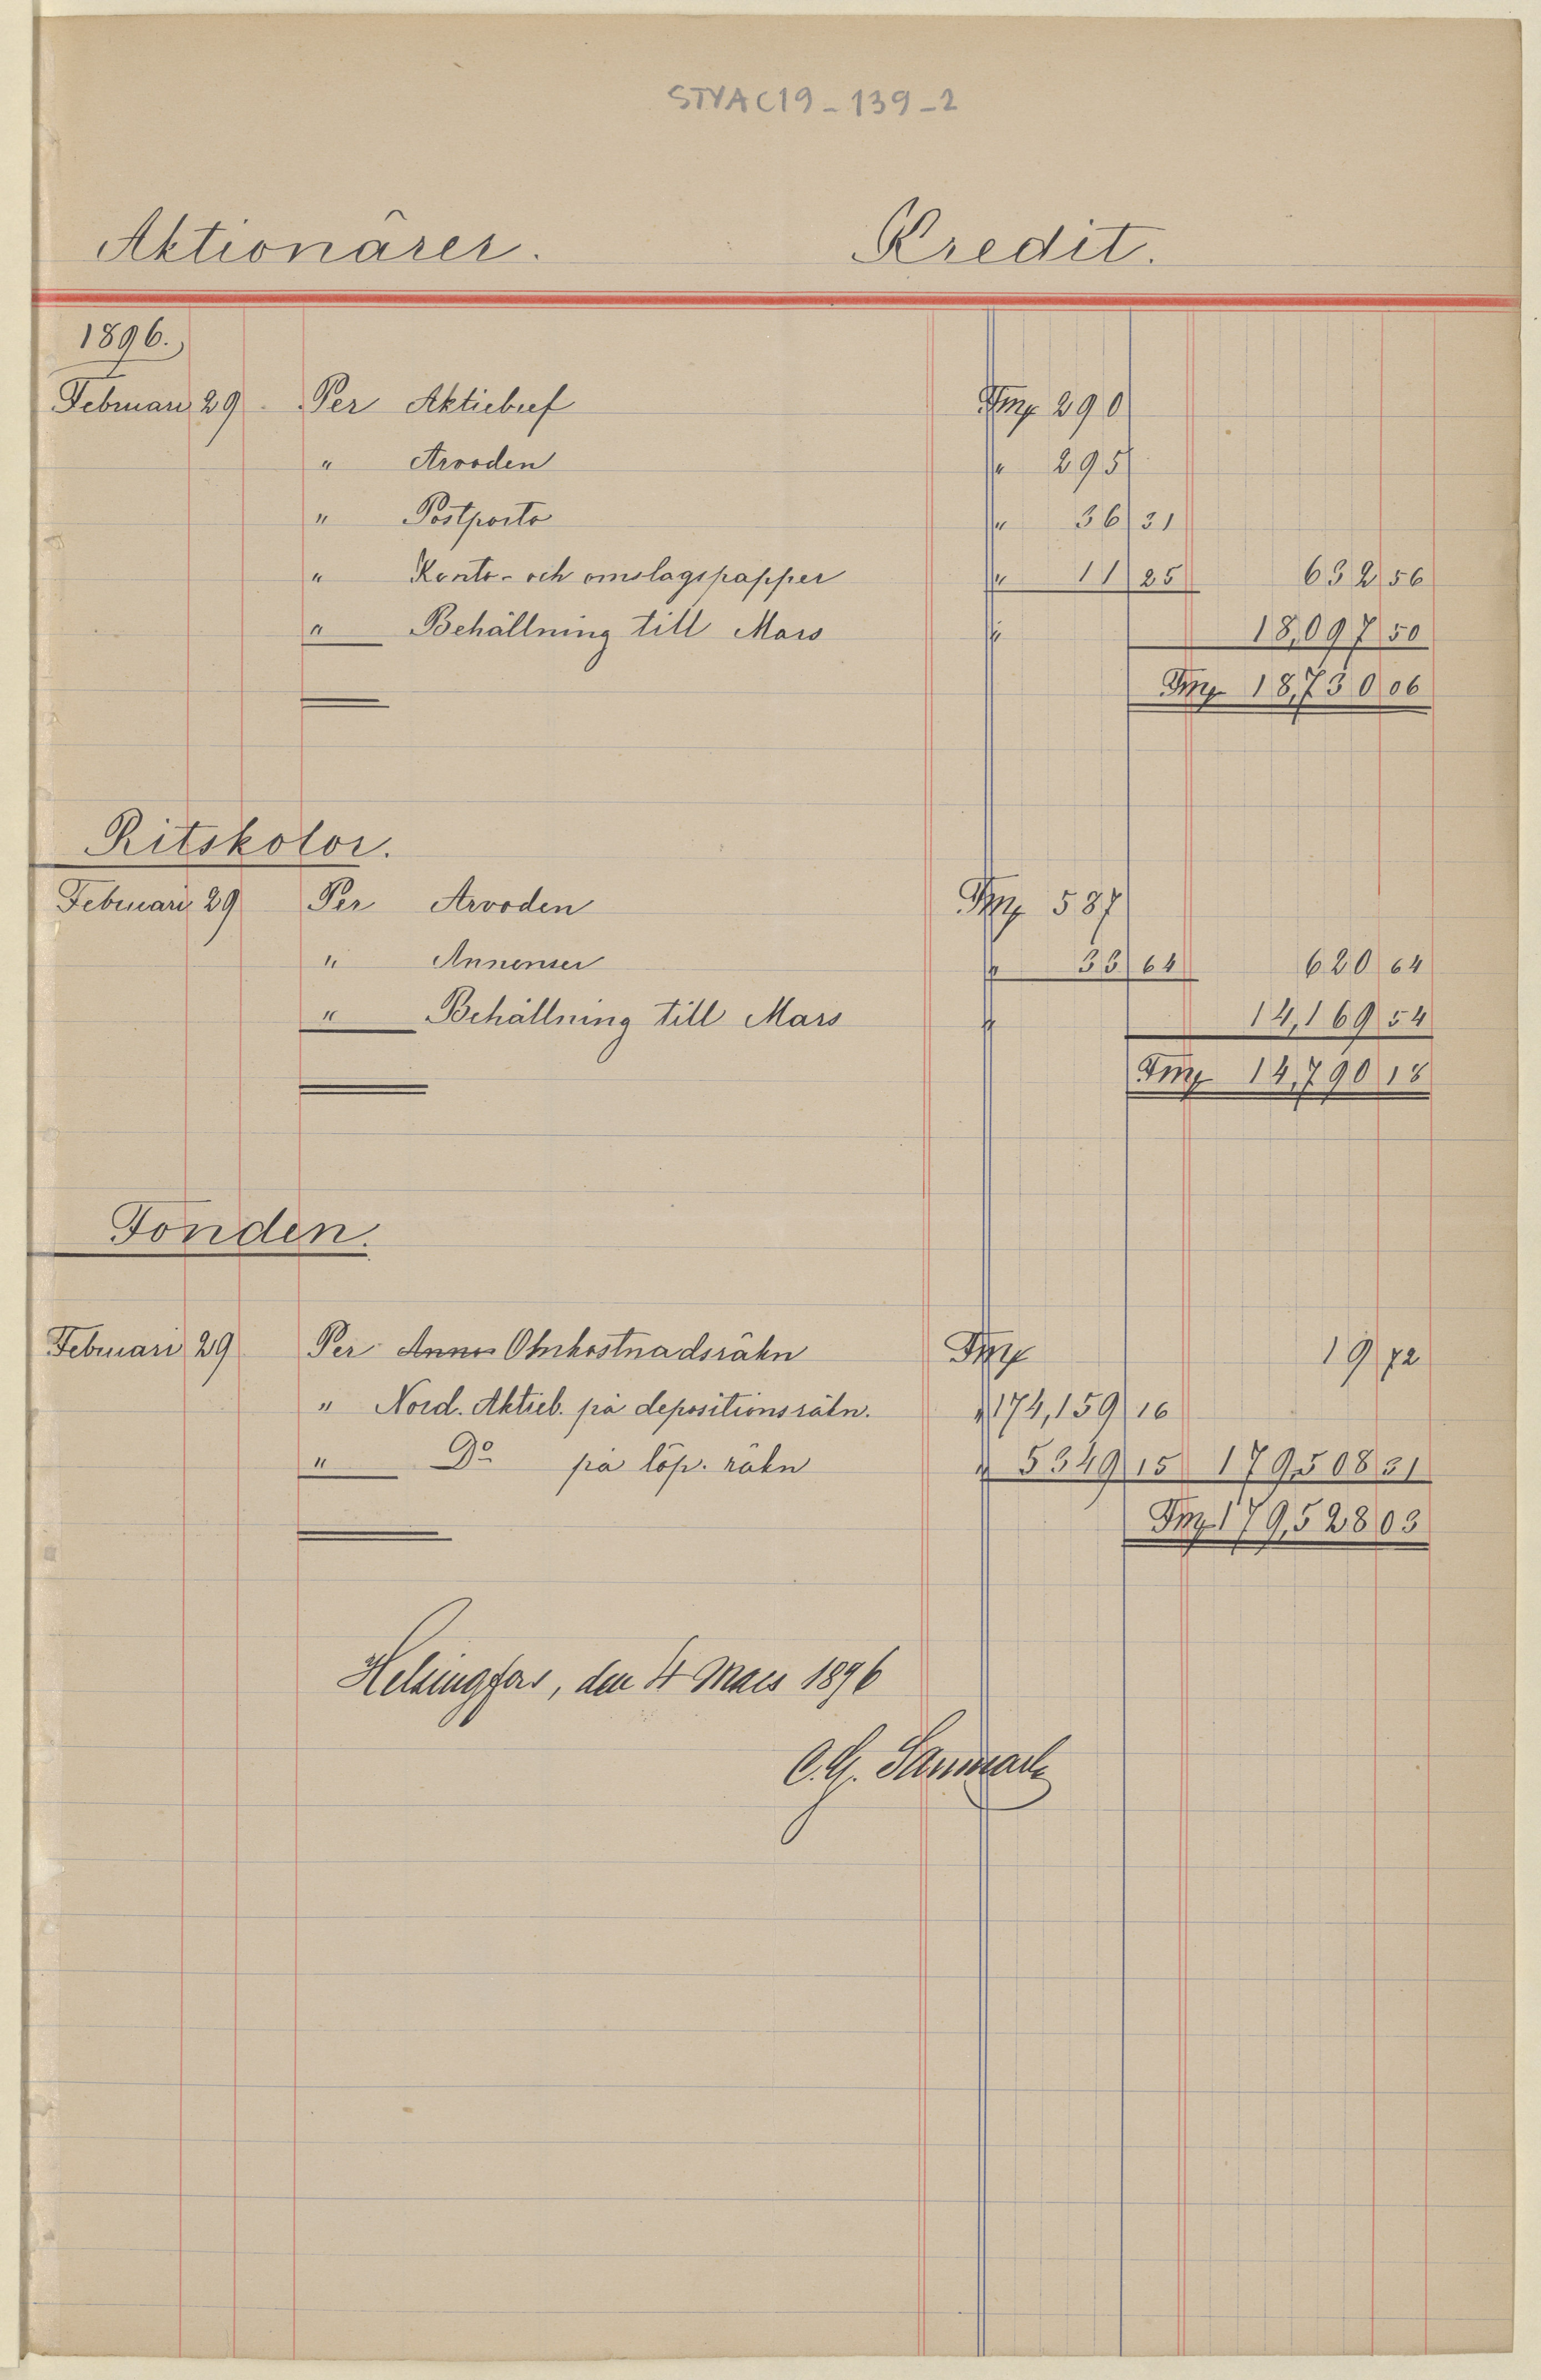 STYAC19-139-2
Aktionärer. Kredit.
1896.
Februari 29 Per Aktiebref Fmg 290
" Arvoden " 295
" Postporto " 36 31
" Konto- och omslagspapper " 11 25 632 56
" Behållning till Mars " 18,097 50
Fmg 18,730 06
Ritskolor.
Februari 29 Per Arvoden Fmg 587
" Annonser " 33 64 620 64
" Behållning till Mars " 14,169 54
Fmg 14,790 18
Fonden.
Februari 29 Per Anno Omkostnadsräkn Fmg 19 72
" Nord. Aktieb. på depositionsräkn. " 174,159 16
" Do på löp. räkn " 5349 15 179508 31
Fmg 179,528 03
Helsingfors, den 4 Mars 1896
C.G. Sanmark